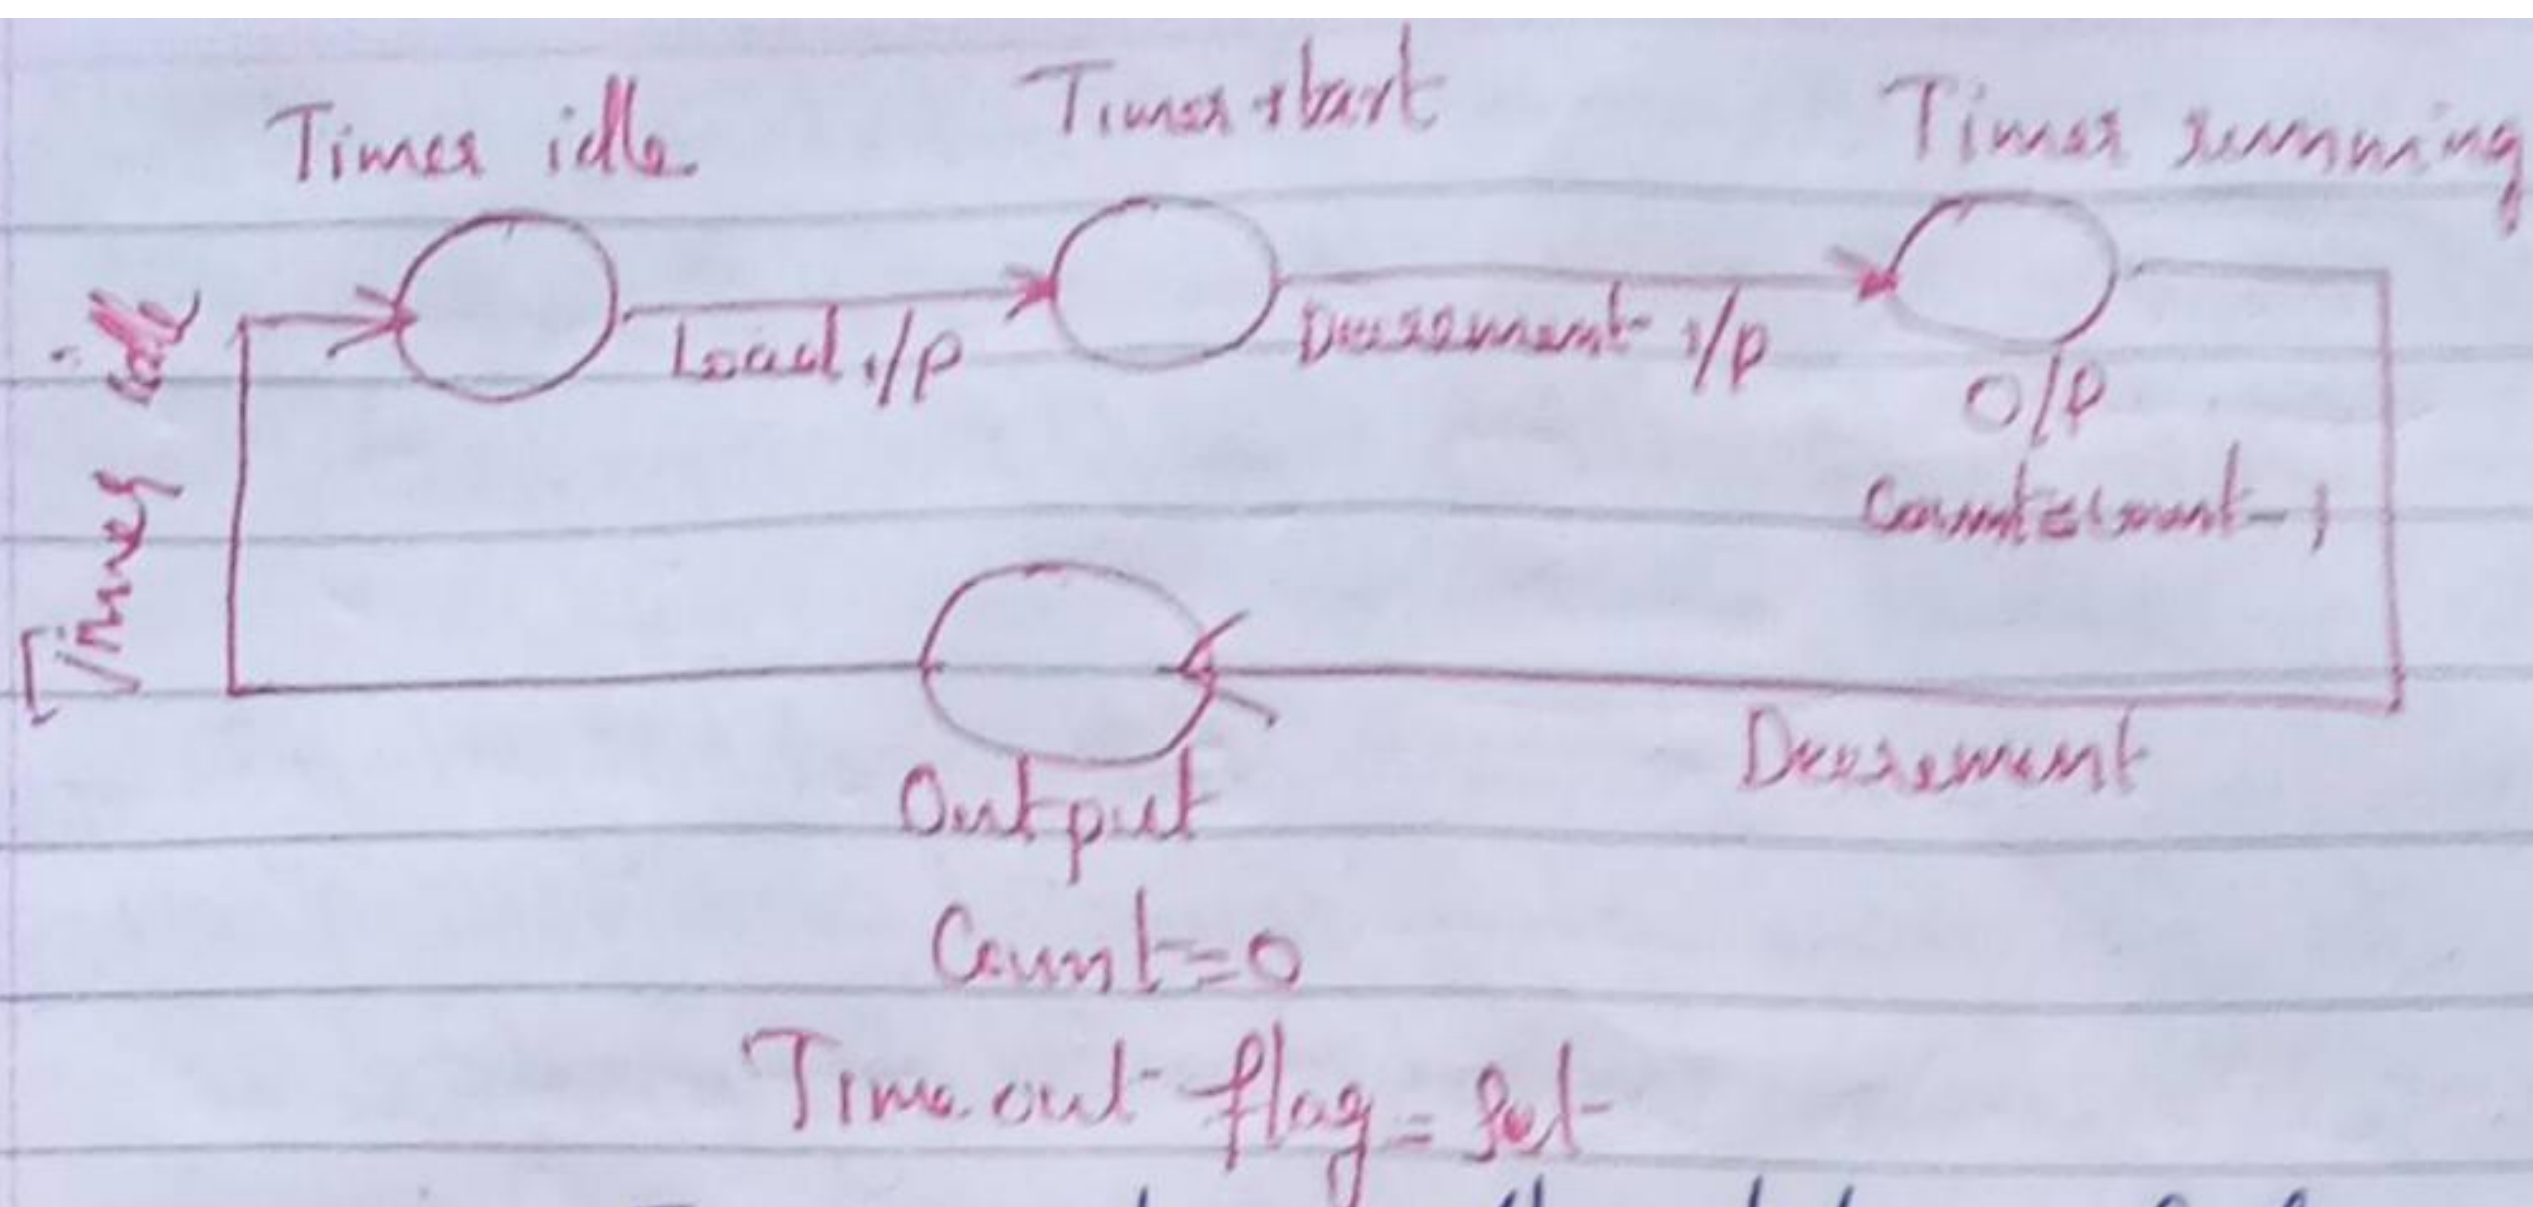 Timer idle
Timer start
Timer running
Load i/p
Decrement i/p
O/P
Count=Count-1
Timer idle
Decrement
Output
Count=0
Time out flag = Set